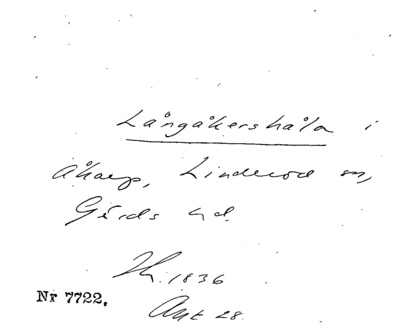 Långåkershåla i
Åkarp, Linderöd sn,
Gärds hd.
Th. 1836
Nr 7722.
Ant 28.